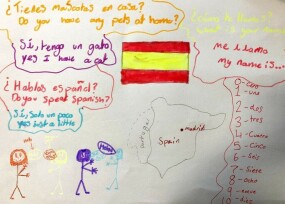 ¿Tienes mascotas en casa?
Do you have any pets at home?
Sí, tengo un gato
yes I have a cat
¿Hablas español?
Do you speak Spanish?
Sí, solo un poco
yes just a little
¿Cómo te llamas?
What is your name
me llamo
my name is...
0 - cero
1 - uno
2 - dos
3 - tres
4 - cuatro
5 - cinco
6 - seis
7 - siete
8 - ocho
9 - nueve
10 - diez
madrid
Spain
Portugal